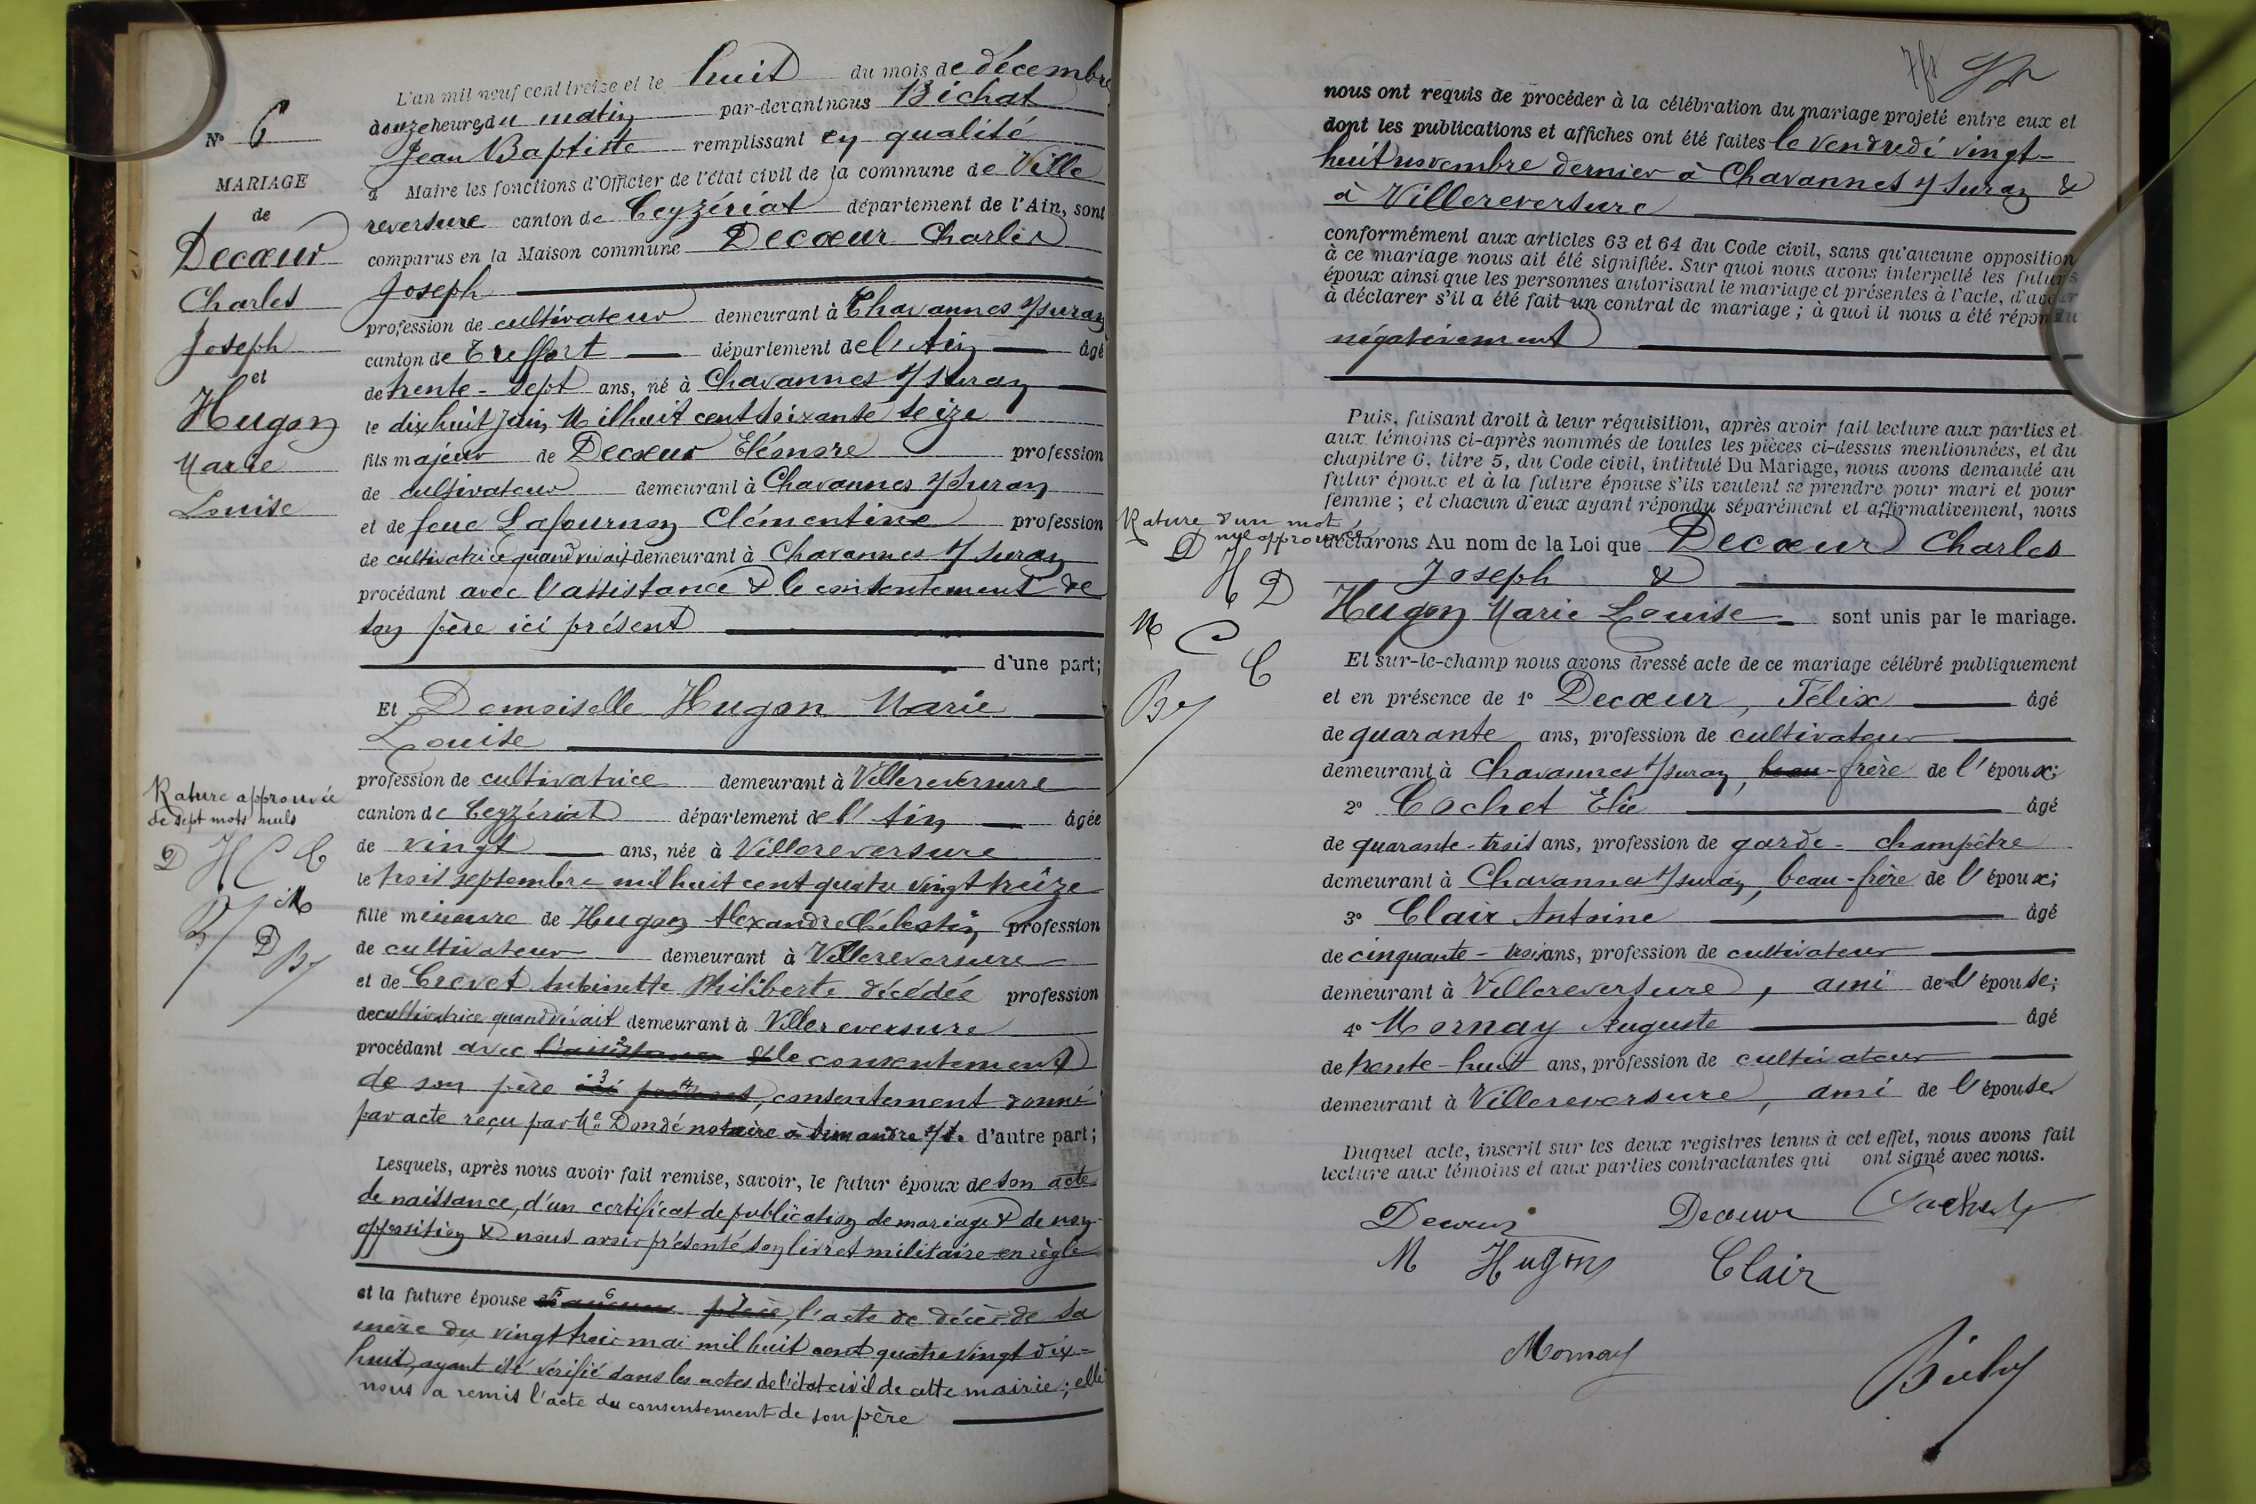 N° 6
MARIAGE
de
Decœur
Charles
Joseph
et
Hugon
Marie
Louise
L'an mil neuf cent treize et le huit du mois de décembre
à onze heures du matin par-devant nous Bichat
Jean Baptiste remplissant en qualité
d Maire les fonctions d'Officier de l'état civil de la commune de Ville
reversure canton de Ceyzériat département de l'Ain, sont
comparus en la Maison commune Decœur Charles
Joseph
profession de cultivateur demeurant à Chavannes s/ Suran
canton de Treffort département de l'Ain âgé
de trente-sept ans, né à Chavannes s/ Suran
le dix huit juin Mil huit cent soixante seize
fils majeur de Decœur Eléonore profession
de cultivateur demeurant à Chavannes s/ Suran
et de feue Lafournon Clémentine profession
de cultivatrice quand vivait demeurant à Chavannes s/ Suran
procédant avec l'assistance & le consentement de
son père ici présent
d'une part;
Et Demoiselle Hugon Marie
Louise
profession de cultivatrice demeurant à Villereversure
canton de Ceyzériat département de l'Ain âgée
de vingt ans, née à Villereversure
le trois septembre mil huit cent quatre vingt treize
fille mineure de Hugon Alexandre Célestin profession
de cultivateur demeurant à Villereversure
et de Crevet Antoinette Philiberte décédée profession
de cultivatrice quand vivait demeurant à Villereversure
procédant avec l'assistance & le consentement
de son père ici présent, consentement donné
par acte reçu par Me Dondé notaire à Simandre s/ S. d'autre part;
Rature approuvée
de sept mots nuls
D H C C
M
D By
Lesquels, après nous avoir fait remise, savoir, le futur époux de son acte
de naissance, d'un certificat de publication de mariage & de non
opposition & nous avoir présenté son livret militaire en règle
et la future épouse d'aucune pièce, l'acte de décès de sa
mère du vingt trois mai mil huit cent quatre vingt dix-
huit, ayant été vérifié dans les actes de l'état civil de cette mairie; elle
nous a remis l'acte du consentement de son père
nous ont requis de procéder à la célébration du mariage projeté entre eux et
dont les publications et affiches ont été faites le vendredi vingt-
huit novembre dernier à Chavannes s/ Suran &
à Villereversure
conformément aux articles 63 et 64 du Code civil, sans qu'aucune opposition
à ce mariage nous ait été signifiée. Sur quoi nous avons interpellé les futurs
époux ainsi que les personnes autorisant le mariage et présentes à l'acte, d'avoir
à déclarer s'il a été fait un contrat de mariage; à quoi il nous a été répondu
négativement
Puis, faisant droit à leur réquisition, après avoir fait lecture aux parties et
aux témoins ci-après nommés de toutes les pièces ci-dessus mentionnées, et du
chapitre 6, titre 5, du Code civil, intitulé Du Mariage, nous avons demandé au
futur époux et à la future épouse s'ils veulent se prendre pour mari et pour
femme; et chacun d'eux ayant répondu séparément et affirmativement, nous
déclarons Au nom de la Loi que Decœur Charles
Joseph &
Hugon Marie Louise sont unis par le mariage.
Rature d'un mot
nul approuvée
D
H D
M C
C
By
Et sur-le-champ nous avons dressé acte de ce mariage célébré publiquement
et en présence de 1° Decœur, Félix âgé
de quarante ans, profession de cultivateur
demeurant à Chavannes s/ Suran, beau-frère de l'époux;
2° Cochet Elie âgé
de quarante-trois ans, profession de garde-champêtre
demeurant à Chavannes s/ Suran, beau-frère de l'époux;
3° Clair Antoine âgé
de cinquante-trois ans, profession de cultivateur
demeurant à Villereversure, ami de l'épouse;
4° Mornay Auguste âgé
de trente-huit ans, profession de cultivateur
demeurant à Villereversure, ami de l'épouse
Duquel acte, inscrit sur les deux registres tenus à cet effet, nous avons fait
lecture aux témoins et aux parties contractantes qui ont signé avec nous.
Decœur Decœur Cochet
M Hugon Clair
Mornay